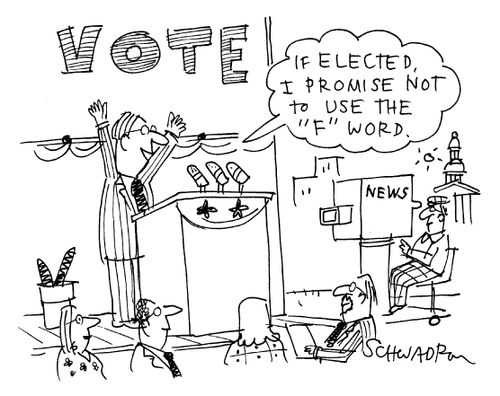 VOTE
IF ELECTED,
I PROMISE NOT
to USE THE
"F" WORD.
NEWS
SCHWADRON